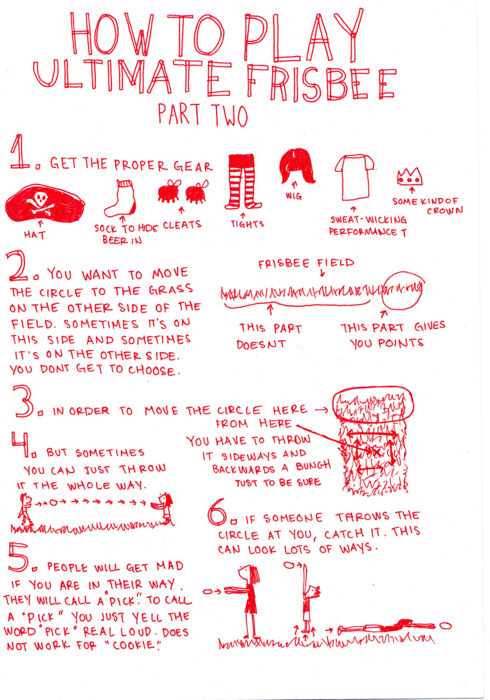 HOW TO PLAY
ULTIMATE FRISBEE
PART TWO
1. GET THE PROPER GEAR
HAT
SOCK TO HIDE
BEER IN
CLEATS
TIGHTS
WIG
SWEAT-WICKING
PERFORMANCE T
SOME KIND OF
CROWN
2. YOU WANT TO MOVE
THE CIRCLE TO THE GRASS
ON THE OTHER SIDE OF THE
FIELD. SOMETIMES IT'S ON
THIS SIDE AND SOMETIMES
IT'S ON THE OTHER SIDE.
YOU DONT GET TO CHOOSE.
FRISBEE FIELD
THIS PART
DOESNT
THIS PART GIVES
YOU POINTS
3. IN ORDER TO MOVE THE CIRCLE HERE
FROM HERE
YOU HAVE TO THROW
IT SIDEWAYS AND
BACKWARDS A BUNGH
JUST TO BE SURE
4. BUT SOMETIMES
YOU CAN JUST THROW
IT THE WHOLE WAY.
5. PEOPLE WILL GET MAD
IF YOU ARE IN THEIR WAY.
THEY WILL CALL A "PICK." TO CALL
A "PICK" YOU JUST YELL THE
WORD "PICK" REAL LOUD. DOES
NOT WORK FOR "COOKIE."
6. IF SOMEONE THROWS THE
CIRCLE AT YOU, CATCH IT. THIS
CAN LOOK LOTS OF WAYS.